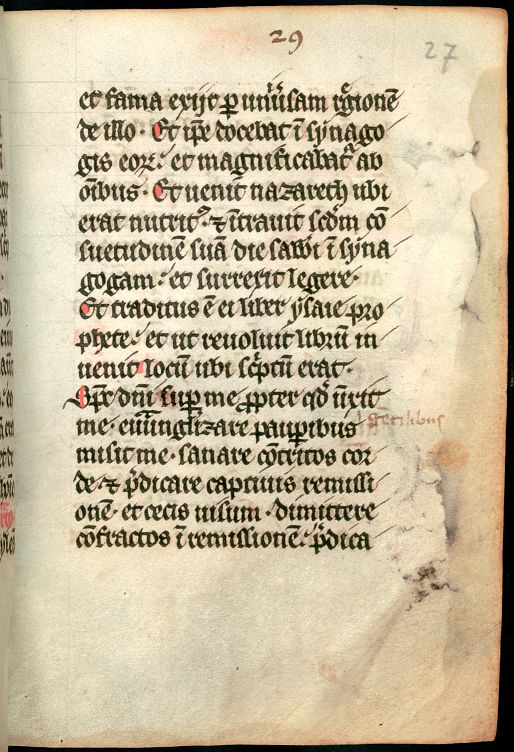 29
27
et fama exijt p uniũsam rͤgionē
de illo · Et ip̄e docebat ĩ synago
gis eoꝝ · et magnificabatᷣ ab
oĩbus · Et uenit nazareth ubi
erat nutritꝰ · ⁊ ĩtrauit scd̄m cō
suetudinē suā die sab̄bi ĩ syna
gogam · et surrexit legere ·
Et traditus ē ei liber ysaie pro
phete · et ut reuoluit librū in
uenit locū ubi scͥptū erat ·
Sp̄c dn̄i sup me ꝓpter qd̓ ũxit
me · euangelizare paupibus
misit me · sanare cōtritos cor
de · ⁊ p̄dicare captiuis remissi
onē · et cecis uisum · dimittere
cōfractos ĩ remissionē · p̄dica